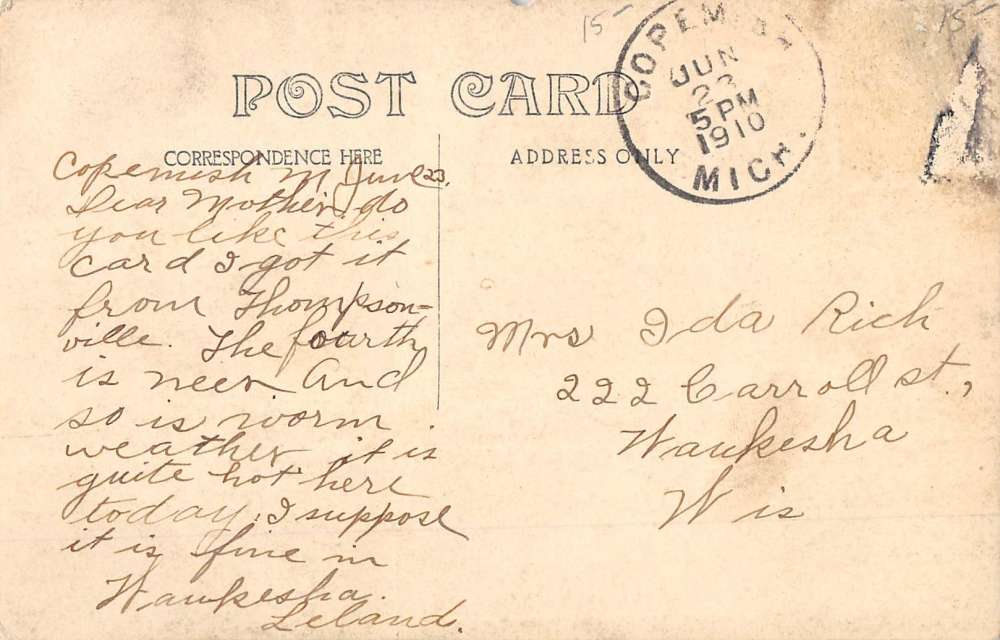 15- 15-
POST CARD
COPEMISH
JUN
23
5 PM
1910
MICH.
CORRESPONDENCE HERE
ADDRESS ONLY
Copemish M June 23.
Dear Mother, do
you like this
card I got it
from Thompson-
ville. The fourth
is neer And
so is worm
weather it is
quite hot here
today. I suppose
it is fine in
Waukesha.
Leland.
Mrs Ida Rich
222 Carroll st.,
Waukesha
Wis